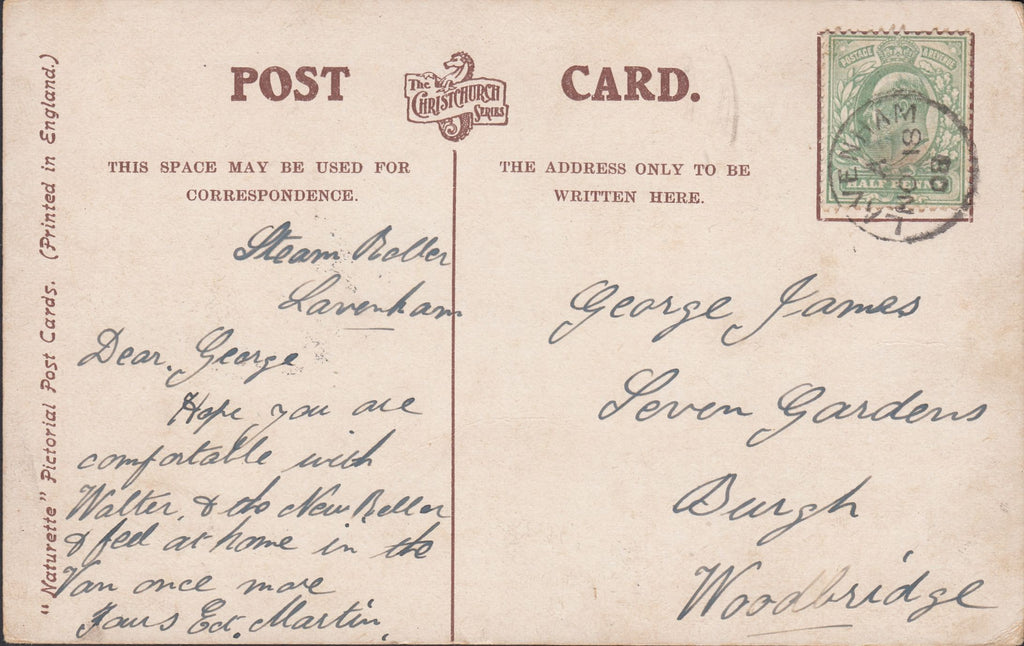 POST CARD.
The
CHRISTCHURCH
SERIES
THIS SPACE MAY BE USED FOR
CORRESPONDENCE.
THE ADDRESS ONLY TO BE
WRITTEN HERE.
"Naturette" Pictorial Post Cards. (Printed in England.)
POSTAGE & REVENUE
HALF PENNY
LAVENHAM
MR 18
08
Steam Roller
Lavenham
Dear. George
Hope you are
comfortable with
Walter, & the New Roller
& feel at home in the
Van once more
Yours Ed. Martin,
George James
Seven Gardens
Burgh
Woodbridge